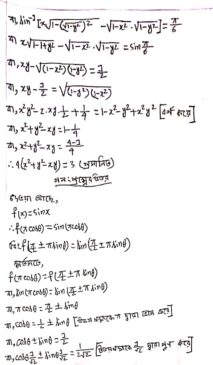 বা, sin⁻¹[x√1-(√1-y²)² - √1-x² . √1-y²] = π/6
বা x√1-1+y² - √1-x² . √1-y² = sin π/6
বা, xy-√(1-x²)(1-y²) = 1/2
বা, xy - 1/2 = √(1-y²)(1-x²)
বা, x²y² - 2.xy.1/2 + 1/4 = 1-x²-y²+x²y² [বর্গ করে]
বা, x²+y²-xy = 1-1/4
বা, x²+y²-xy = 4-1/4
∴ 4(x²+y²-xy) = 3 (প্রমাণিত)
দেওয়া আছে,
f(x) = sinx
∴ f(πcosθ) = sin(πcosθ)
এবং f(π/2 ± πsinθ) = sin(π/2 ± πsinθ)
প্রশ্নমতে,
f(πcosθ) = f(π/2 ± πsinθ)
বা, sin(πcosθ) = sin(π/2 ± πsinθ)
বা, πcosθ = π/2 ± πsinθ
বা, cosθ = 1/2 ± sinθ [উভয়পক্ষকে π দ্বারা ভাগ করে]
বা, cosθ ∓ sinθ = 1/2
বা, cosθ 1/√2 ∓ 1/√2 sinθ = 1/2√2 [উভয়পক্ষকে 1/√2 দ্বারা গুণ করে]